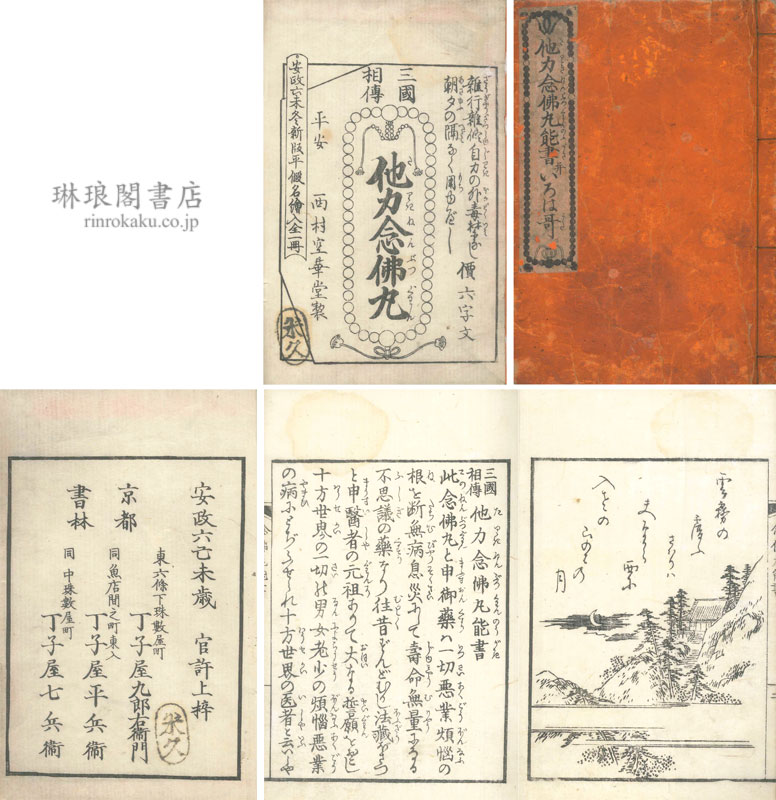 琳琅閣書店
rinrokaku.co.jp
雜行雜修自力の外毒忌なし 價六字文
朝夕の隔なく用ゆべし
三國
相傳
他力念佛丸
平安 西村空華堂製
安政六未冬新版平假名繪入全一冊
米久
他力念佛丸能書 并 いろは哥
安政六己未歳 官許上梓
京都
書林
東六條下珠數屋町
丁子屋九郎右衞門
同魚店間之町東入
丁子屋平兵衞
同中珠數屋町
丁子屋七兵衞
米久
三國
相傳 他力念佛丸能書
此念佛丸と申御藥ハ一切惡業煩惱の
根を断無病息災にして壽命無量になる
不思議の藥なり往昔
法藏
と申醫者の元祖ありて大なる誓願をおこし
十方世界の一切の男女老少の煩惱惡業
の病に
十方世界の医者と云
雲
入
月